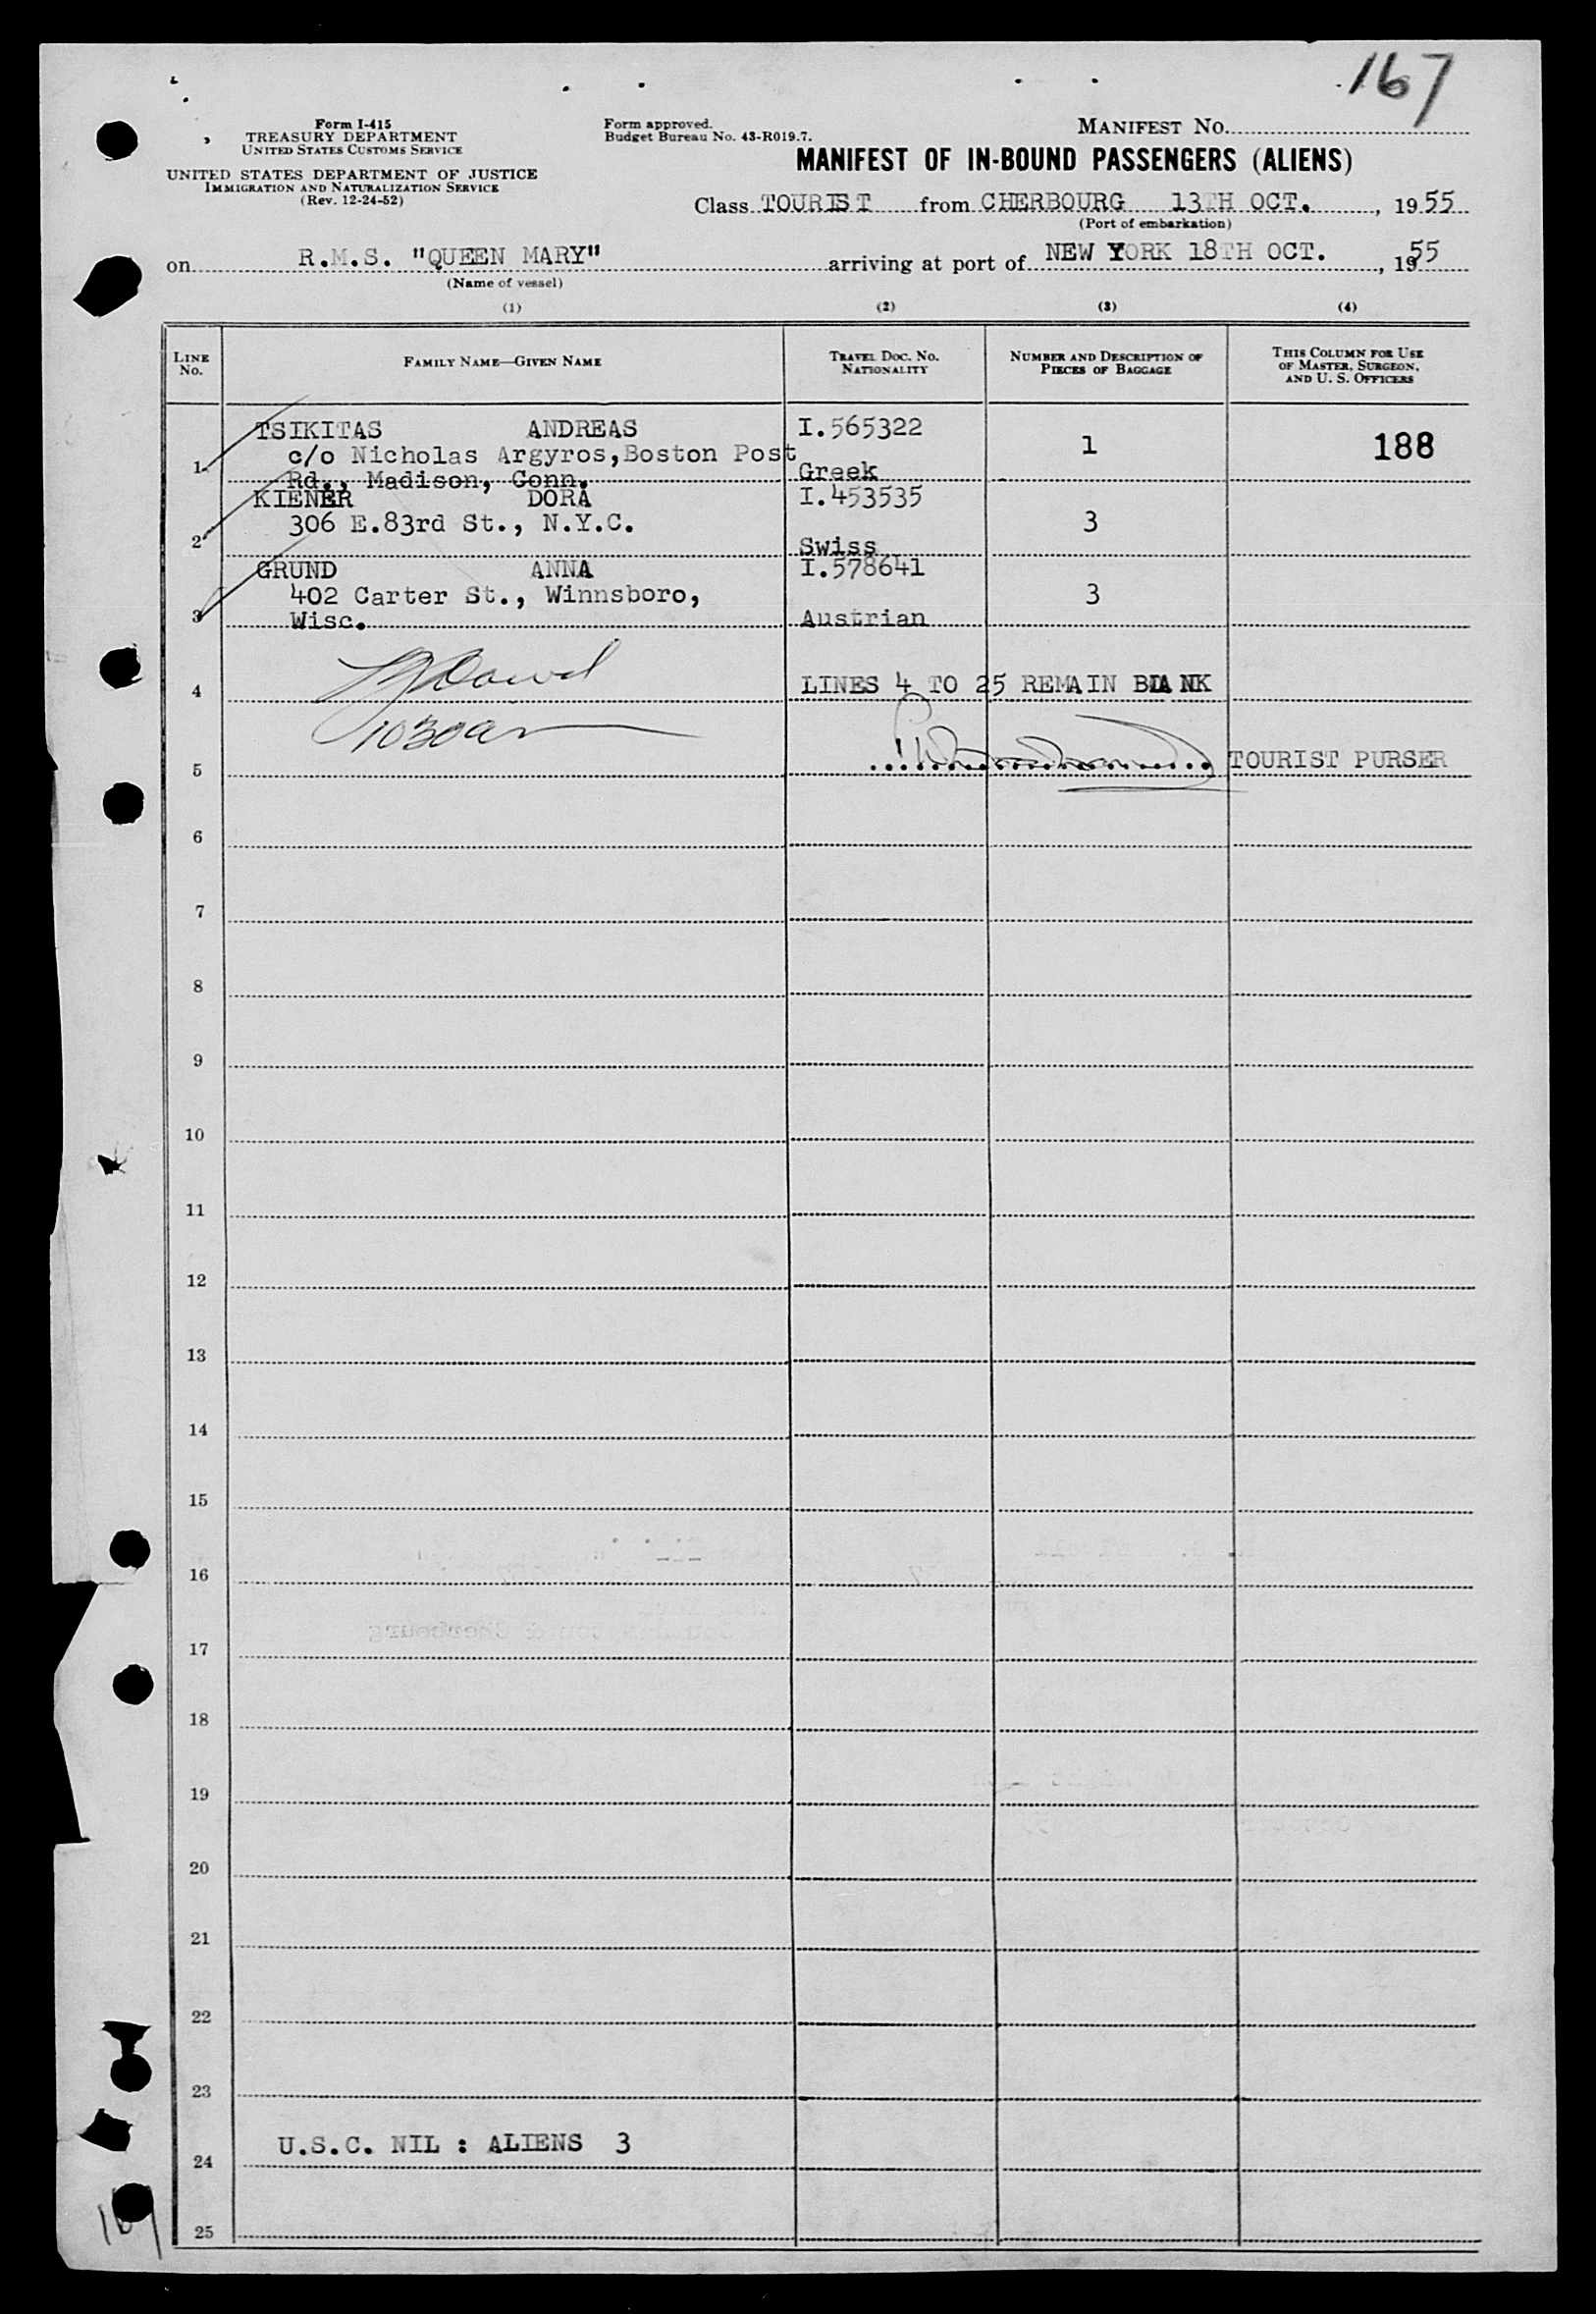 167
Form I-415
TREASURY DEPARTMENT
UNITED STATES CUSTOMS SERVICE
UNITED STATES DEPARTMENT OF JUSTICE
IMMIGRATION AND NATURALIZATION SERVICE
(Rev. 12-24-52)
Form approved.
Budget Bureau No. 43-R019.7.
MANIFEST NO.
MANIFEST OF IN-BOUND PASSENGERS (ALIENS)
Class TOURIST from CHERBOURG 13TH OCT., 1955
(Port of embarkation)
on R.M.S. "QUEEN MARY" arriving at port of NEW YORK 18TH OCT., 1955
(Name of vessel)
(1) (2) (3) (4)
LINE NO. FAMILY NAME—GIVEN NAME TRAVEL DOC. NO. NATIONALITY NUMBER AND DESCRIPTION OF PIECES OF BAGGAGE THIS COLUMN FOR USE OF MASTER, SURGEON, AND U. S. OFFICERS
TSIKITAS ANDREAS I.565322
c/o Nicholas Argyros, Boston Post 1 188
1 Rd., Madison, Conn. Greek
KIENER DORA I.453535
306 E.83rd St., N.Y.C. 3
2 Swiss
GRUND ANNA I.578641
402 Carter St., Winnsboro, 3
3 Wisc. Austrian
4 LINES 4 TO 25 REMAIN BLANK
1030am
5 TOURIST PURSER
6
7
8
9
10
11
12
13
14
15
16
17
18
19
20
21
22
23
U.S.C. NIL : ALIENS 3
24
25
167